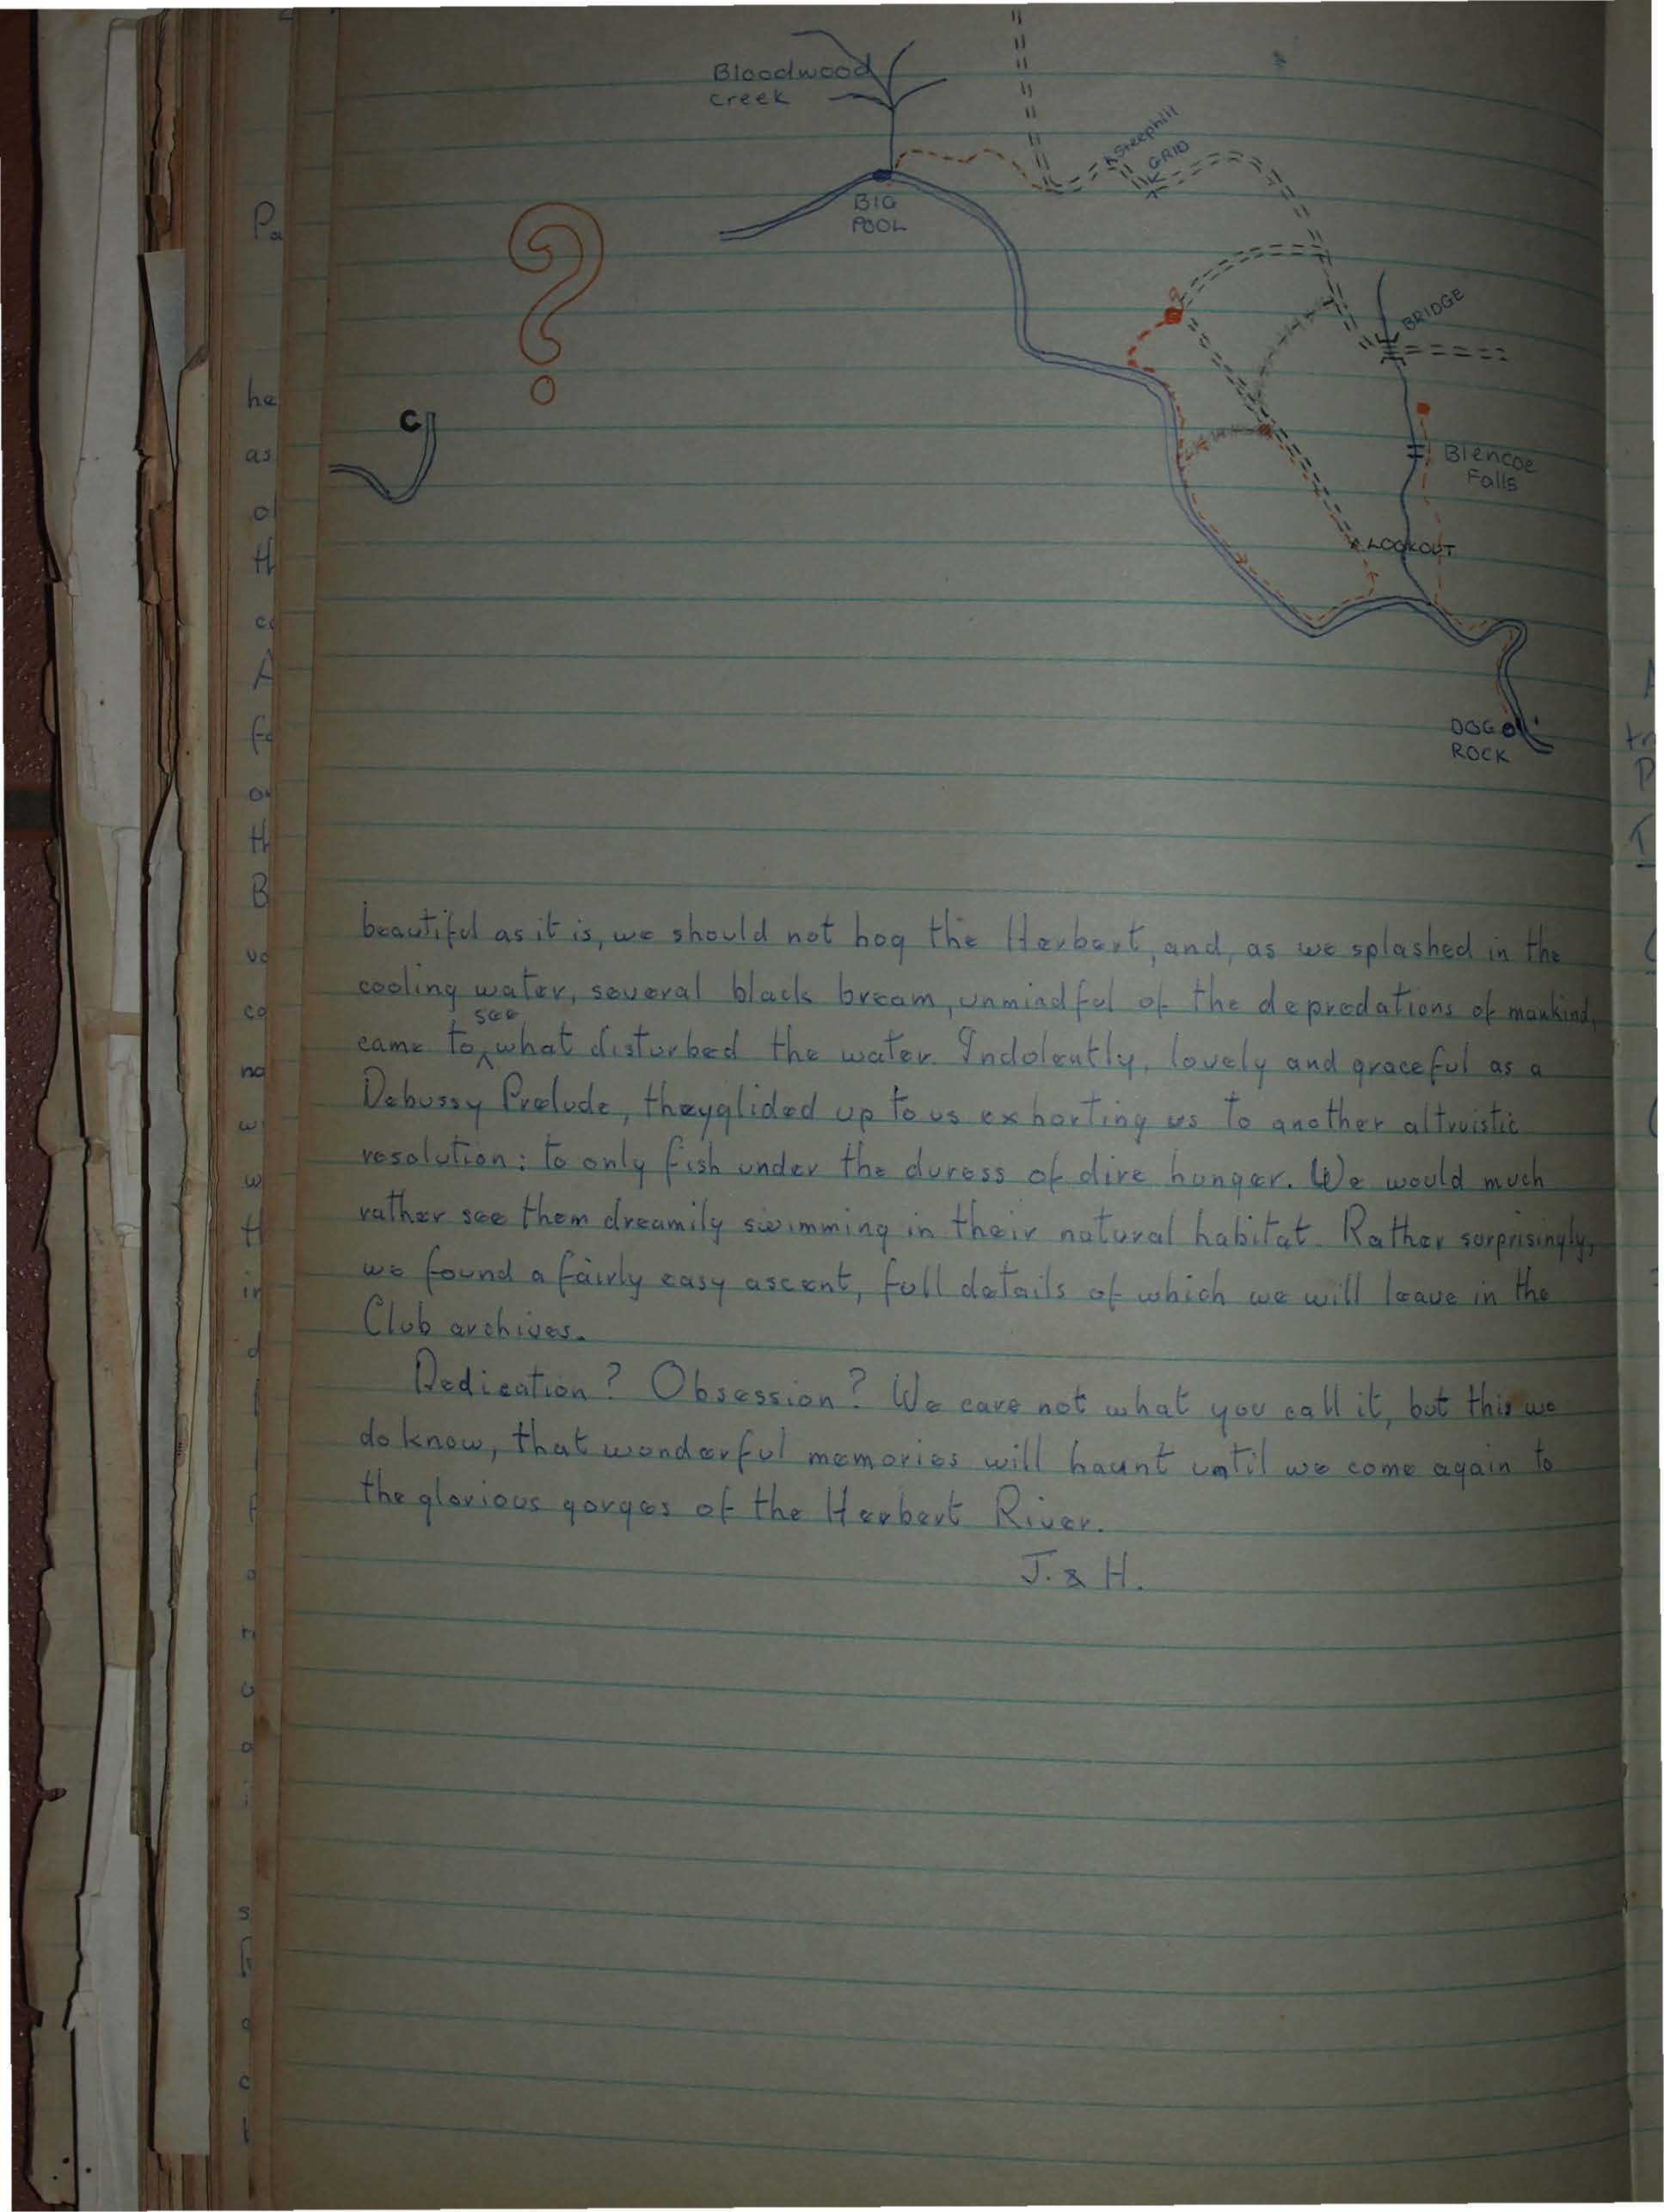 Bloodwood
creek
Steephill
GRID
BIG
POOL
?
BRIDGE
C
Blencoe
Falls
LOOKOUT
DOG
ROCK
beautiful as it is, we should not hog the Herbert, and, as we splashed in the
cooling water, several black bream, unmindful of the depredations of mankind,
came to see what disturbed the water. Indolently, lovely and graceful as a
Debussy Prelude, they glided up to us exhorting us to another altruistic
resolution: to only fish under the duress of dire hunger. We would much
rather see them dreamily swimming in their natural habitat. Rather surprisingly,
we found a fairly easy ascent, full details of which we will leave in the
Club archives.
Dedication? Obsession? We care not what you call it, but this we
do know, that wonderful memories will haunt until we come again to
the glorious gorges of the Herbert River.
J. & H.